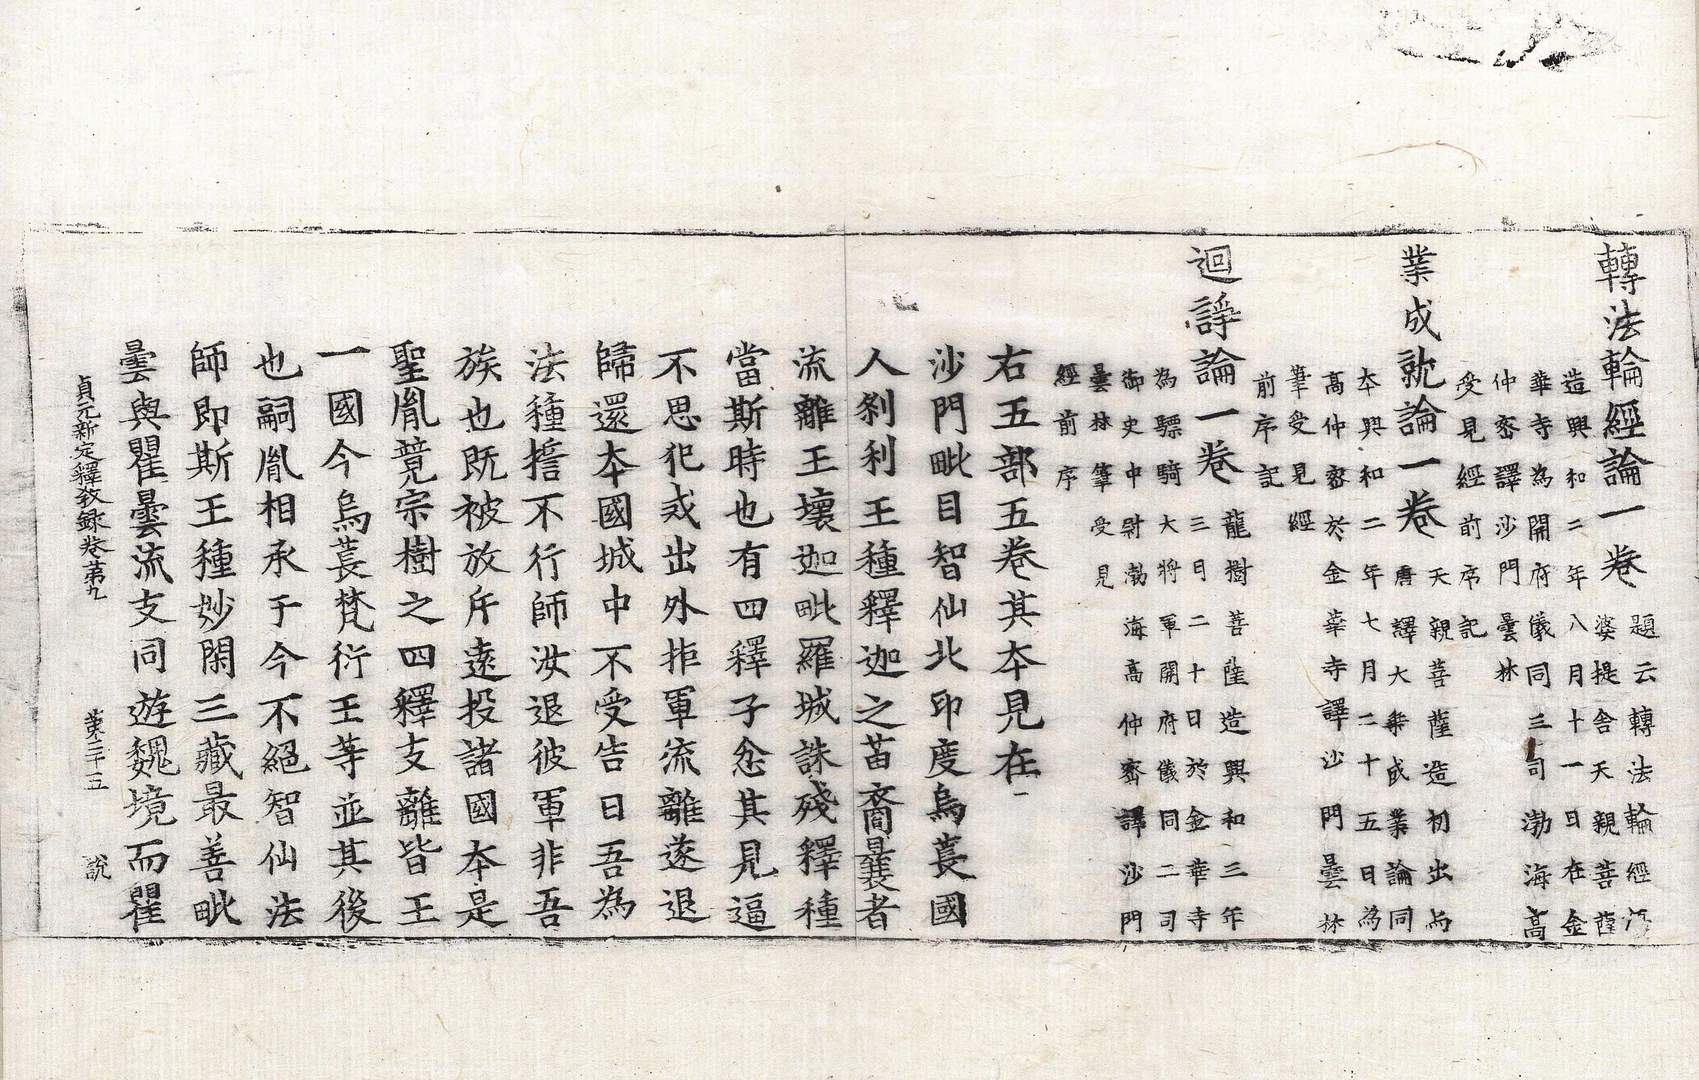 轉法輪經論一卷題云轉法輪經
婆提舍天親菩薩
造興和二年八月十一日在金
華寺為開府儀同三司渤海高
仲密譯沙門曇林
受見經前序記
業成就論一卷天親菩薩造初出與
唐譯大乘成業論同
本興和二年七月二十五日為
高仲密於金華寺譯沙門曇林
筆受見經
前序記
迴諍論一卷龍樹菩薩造興和三年
三日二十日於金華寺
為驃騎大將軍開府儀同二司
御史中尉渤海高仲密譯沙門
曇林筆受見
經前序
右五部五卷其本見在
沙門毗目智仙北印度烏萇國
人刹利王種釋迦之苗裔曩者
流離王壞迦毗羅城誅殘釋種
當斯時也有四釋子忿其見逼
不思犯戒出外拒軍流離遂退
歸還本國城中不受告曰吾為
法種誓不行師汝退彼軍非吾
族也既被放斥遠投諸國本是
聖胤競宗樹之四釋支離皆王
一國今烏萇梵衍王等並其後
也嗣胤相承于今不絕智仙法
師即斯王種妙閑三藏最善毗
曇與瞿曇流支同遊魏境而瞿
貞元新定釋教錄卷第九 第三十五 說